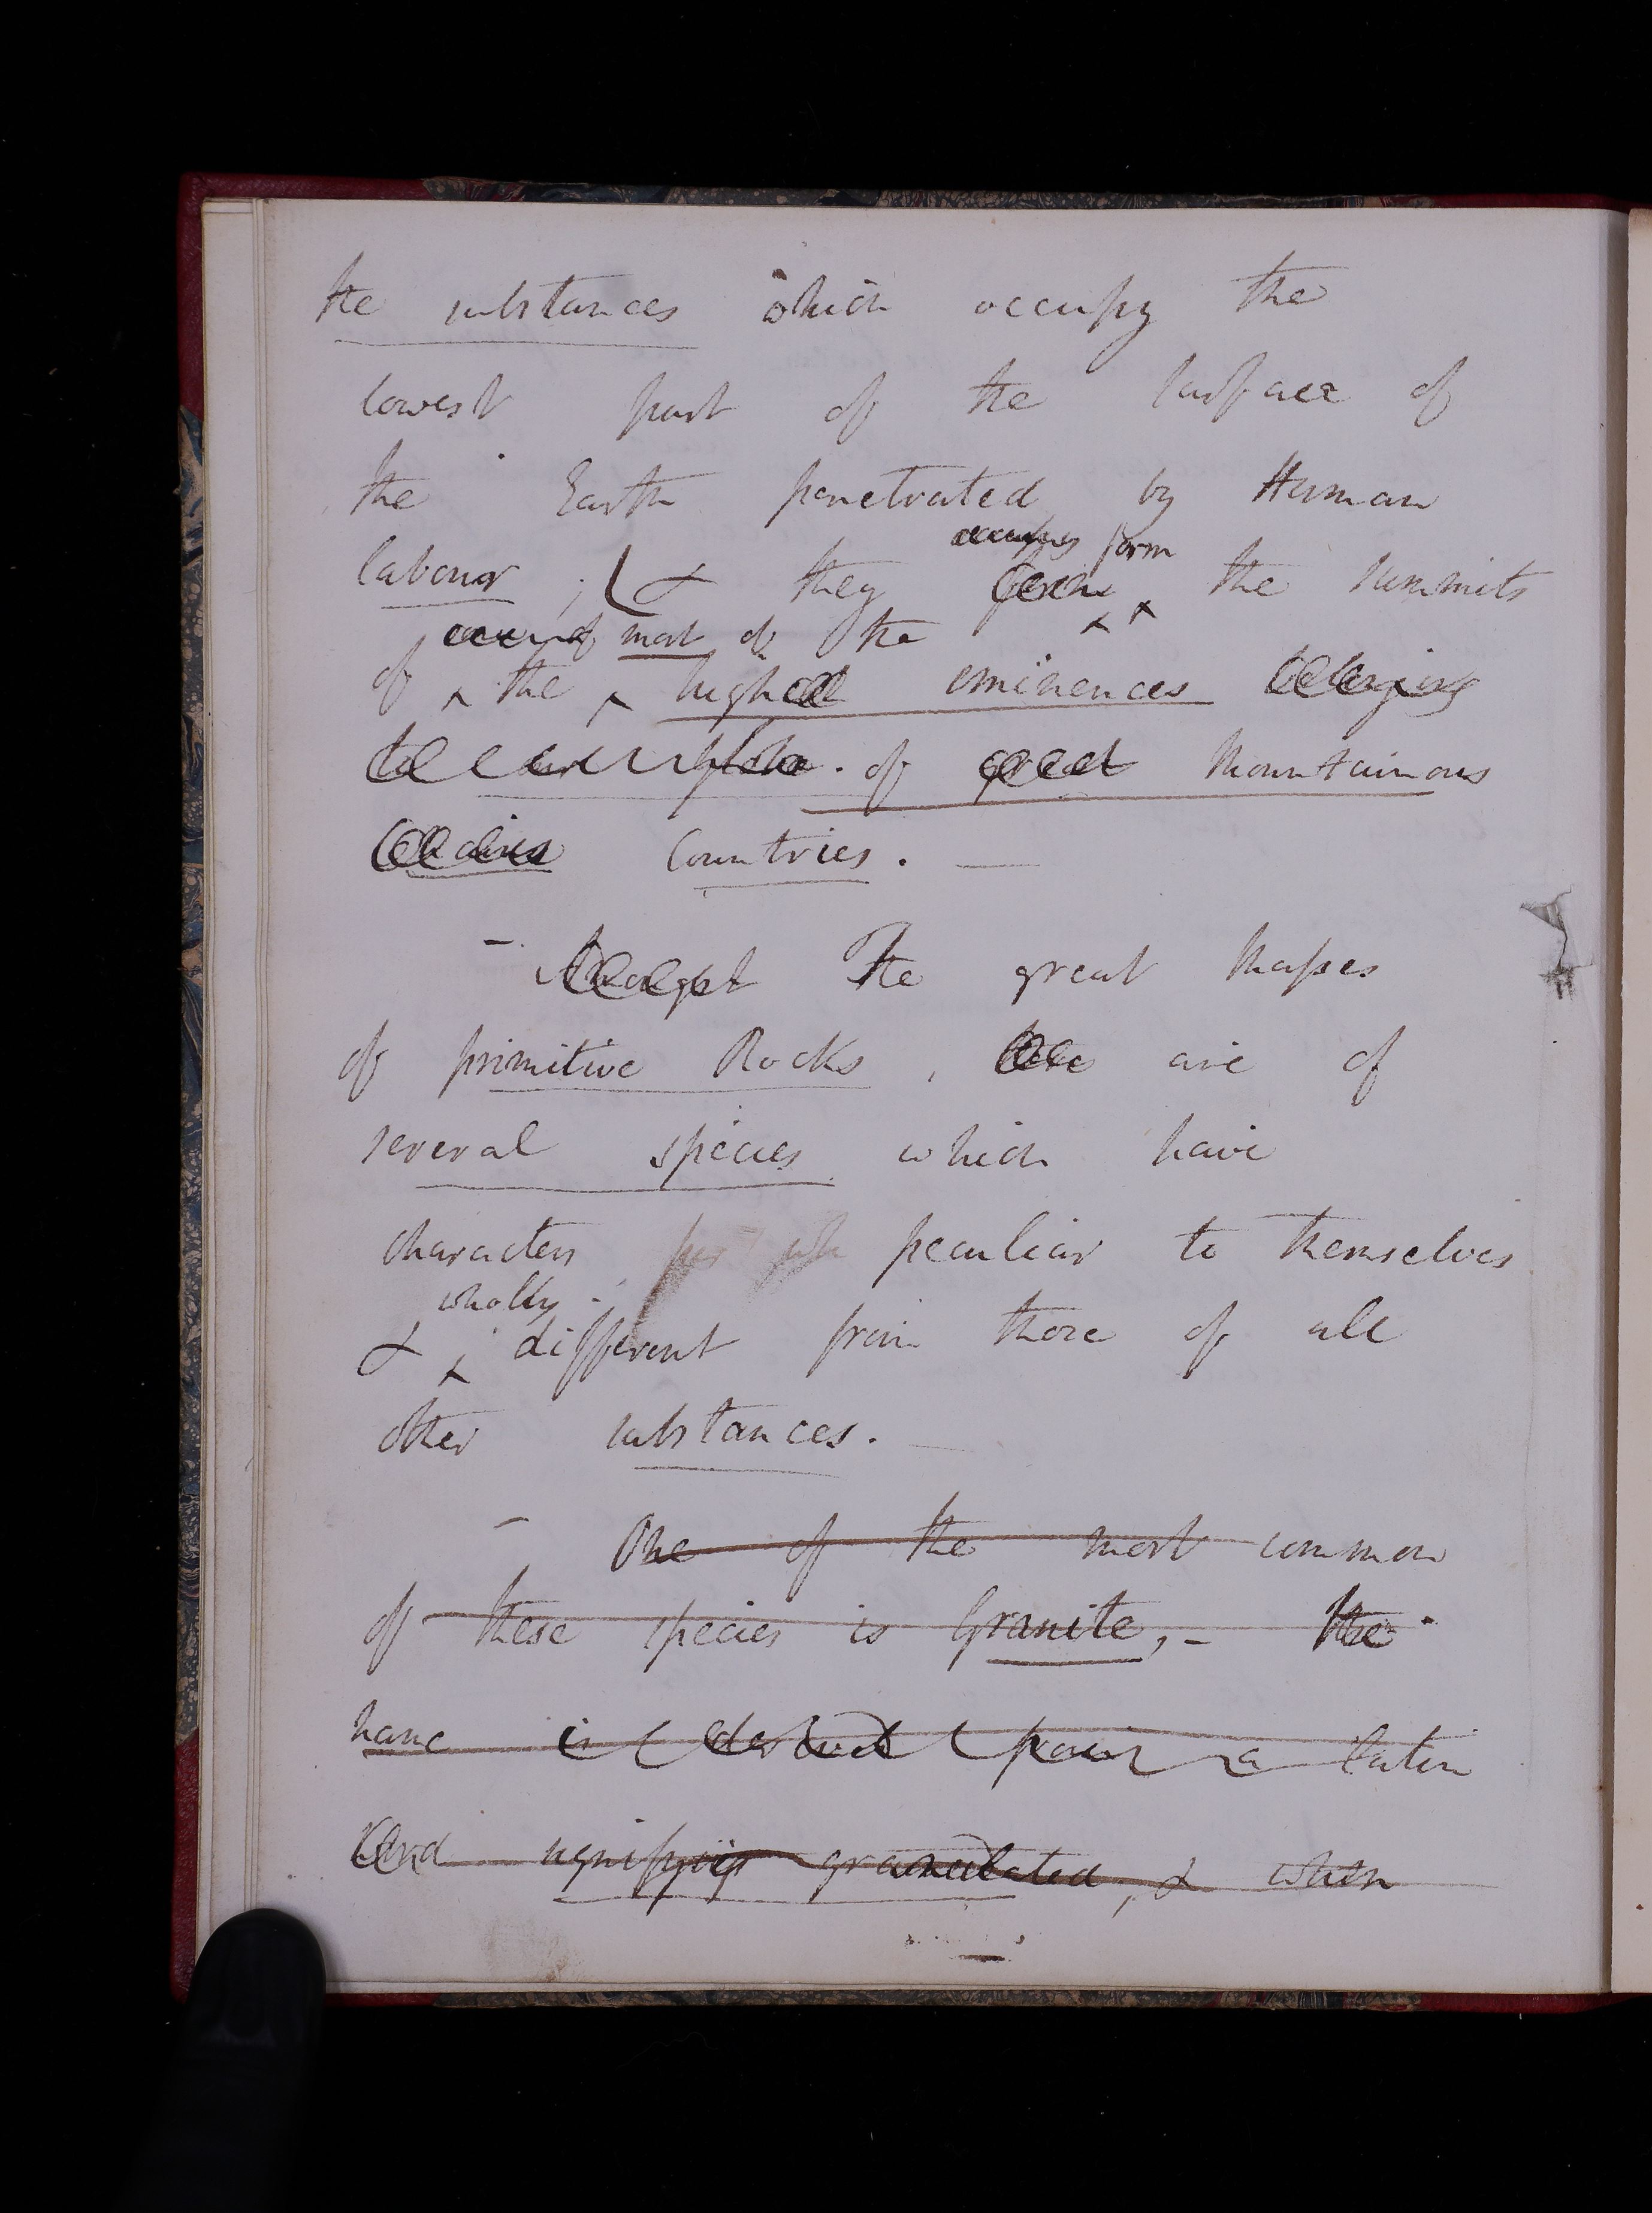 the substances which occupy the
lowest part of the surface of
the Earth penetrated by Human
occupy form
labour ; & they form the summits
most of the
of the high eminences belonging
of great Mountainous
Countries. —
- Amongst The great Masses
of primitive Rocks, are of
several species which have
characters peculiar to themselves
wholly
& different from those of all
other substances. —
- One of the most common
of these species is Granite, - the
name is derived from a latin
Word signifying granulated, & when